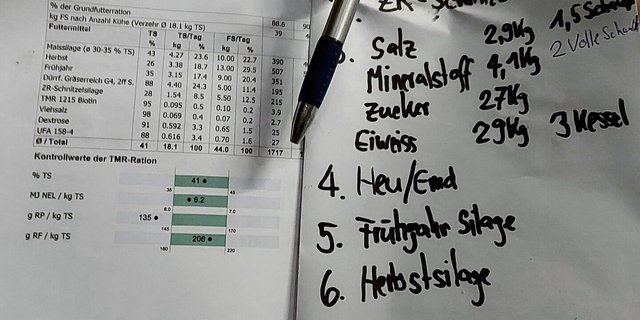 % der Grundfutterration 88.6 90
kg FS nach Anzahl Kühe (Verzehr Ø 18.1 kg TS) 39 4
Futtermittel TS T8/Tag F8/Tag
% kg % kg %
Maissilage (ø 30-35 % TS) 43 4.27 23.6 10.00 22.7 390
Herbst 26 3.38 18.7 13.00 29.5 507
Frühjahr 35 3.15 17.4 9.00 20.4 351
Dürrf. Gräserreich G4, 2ff S. 88 4.40 24.3 5.00 11.4 195
ZR-Schnitzelsilage 28 1.54 8.5 5.50 12.5 215
TMR 1215 Biotin 95 0.095 0.5 0.10 0.2 3.9
Viehsalz 98 0.069 0.4 0.07 0.2 2.7
Dextrose 91 0.592 3.3 0.65 1.5 25
UFA 158-4 88 0.616 3.4 0.70 1.6 27
Ø / Total 41 18.1 100 44.0 100 1717
Kontrollwerte der TMR-Ration
% TS 41
35 45
MJ NEL / kg TS 6.2
6.0
g RP / kg TS 135
145 170
g RF / kg TS 206
180 220
Salz 2,9Kg 1,5
2 Volle
Mineralstoff 4,1Kg
Zucker 27Kg
Eiweiss 29Kg 3 Kessel
4. Heu/Emd
5. Frühjahr Silage
6. Herbstsilage